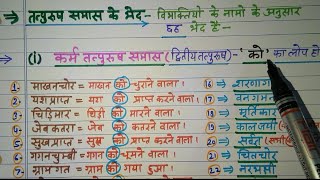 तत्पुरुष समास के भेद - विभक्तियों के नामों के अनुसार
छह भेद हैं-
(i) कर्म तत्पुरुष समास (द्वितीय तत्पुरुष) - 'को' का लोप हो
1. माखनचोर = माखन को चुराने वाला।
2. यश प्राप्त = यश को प्राप्त करने वाला।
3. चिड़िमार = चिड़ी को मारने वाला।
4. जेब कतरा = जेब को कतरने वाला।
5. सुख प्राप्त = सुख को प्राप्त करने वाला।
6. गगनचुम्बी = गगन को चूमने वाला।
7. ग्रामगत = ग्राम को गया हुआ।
16. शरणागत
17. वनगमन
18. मूर्तिकार
19. कालजयी
20.
21. चितचोर
22. नरभक्षी